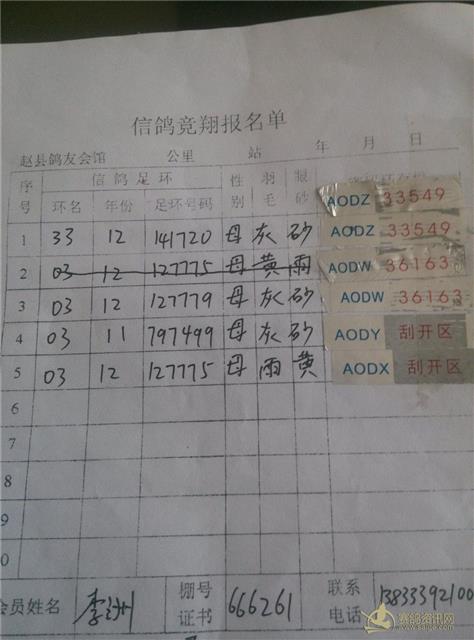 信鸽竞翔报名单
赵县鸽友会馆 公里 站 年 月 日
序号 信鸽足环 性别 羽毛 眼砂
环名 年份 足环号码
1 33 12 141720 母 灰 砂
2 03 12 127775 母 黄 雨
3 03 12 127779 母 灰 砂
4 03 11 797499 母 灰 砂
5 03 12 127775 母 雨 黄
6
7
8
9
0
AODZ 33549
AODZ 33549
AODW 36163
AODW 36163
AODY 刮开区
AODX 刮开区
会员姓名 李 棚号证书 666261 联系电话 13833392100
赛鸽资讯网